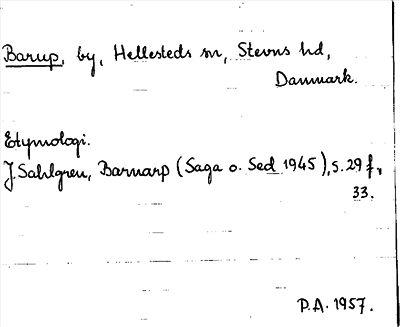 Barup, by, Hellesteds sn, Stevns hd,
Danmark.
Etymologi.
J. Sahlgren, Barnarp (Saga o. Sed 1945), s. 29 f,
33.
P.A. 1957.